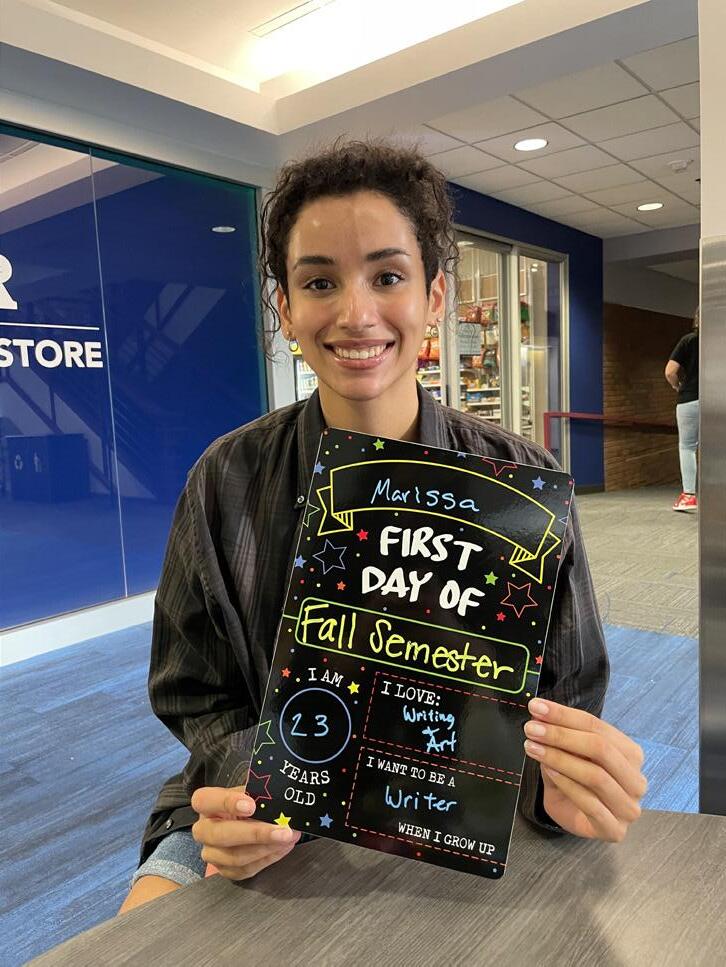 R
STORE
Marissa
FIRST
DAY OF
Fall Semester
I AM
23
YEARS
OLD
I LOVE:
Writing
+
Art
I WANT TO BE A
Writer
WHEN I GROW UP